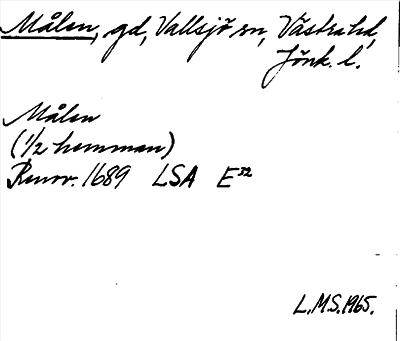 Målen, gd, Vallsjö sn, Västra hd,
Jönk. l.
Målen
(1/2 hemman)
Renov. 1689 LSA E32
L.M.S. 1965.